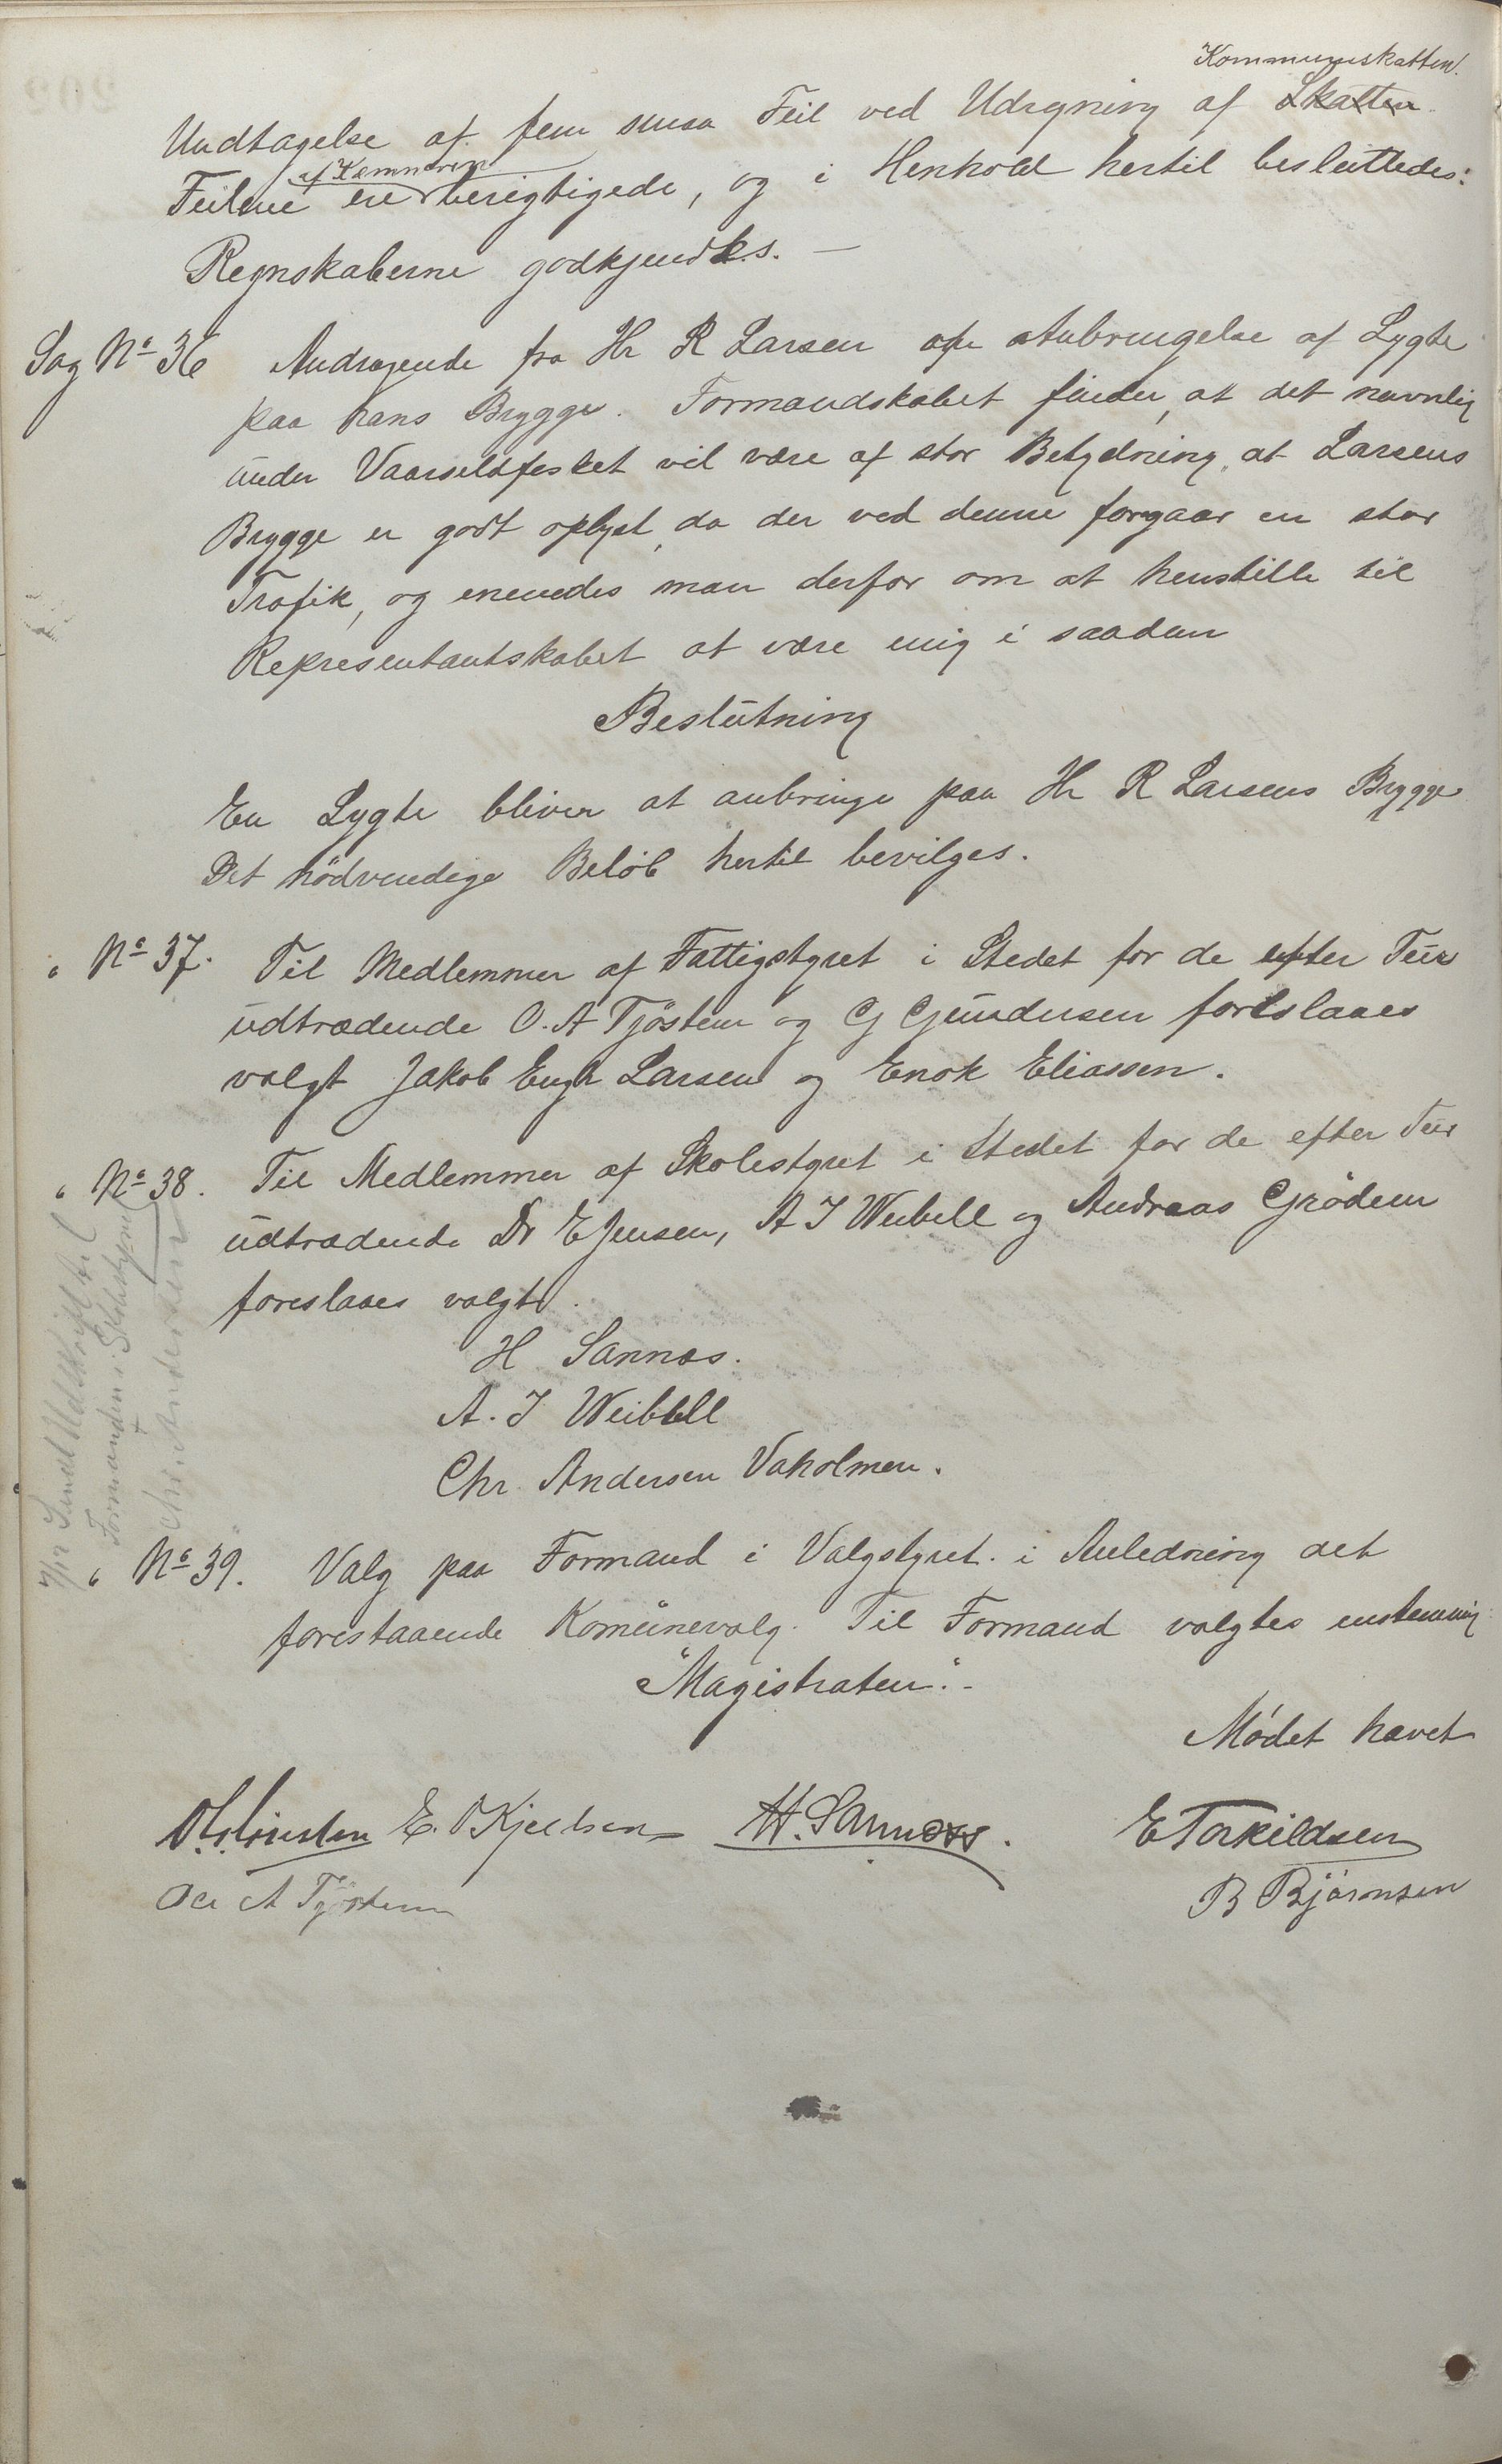 Kommuneskatten.
Undtagelse af fem smaa Feil ved Udregning af Skatten
af Kemneren
Feilene ere berigtigede, og i Henhold hertil besluttedes:
Regnskaberne godkjendtes. —
Sag No 36 Andragende fra Hr R Larsen om Anbringelse af Lygte
paa hans Brygge. Formandskabet finder, at det navnlig
under Vaarsildfisket vil være af stor Betydning, at Larsens
Brygge er godt oplyst, da der ved denne foregaar en stor
Trafik, og enedes man derfor om at henstille til
Representantskabet at være enig i saadan
Beslutning
En Lygte bliver at anbringe paa Hr R Larsens Brygge
Det nödvendige Beløb hertil bevilges.
" No 37. Til Medlemmer af Fattigstyret i Stedet for de efter Tur
udtrædende O. A Tjöstem og G Gundersen foreslaaes
valgt Jakob Engh Larsen og Enok Eliassen.
" No 38. Til Medlemmer af Skolestyret i Stedet for de efter Tur
udtrædende Dr E Jensen, A I Weibell og Andreas Grödem
foreslaaes valgt.
H Sannæs.
A. I Weibell
Chr. Andersen Vaholmen.
7/12 Sendt Udskrift til
Formanden i Skolestyret
Chr. Andersen
" No 39. Valg paa Formand i Valgstyret i Anledning det
forestaaende Komunevalg. Til Formand valgtes enstemmig
"Magistraten".-
Mödet hævet
E. O Kjeldsen H. Sannæs. E Torkildsen
A Tjöstem B Bjørnsen